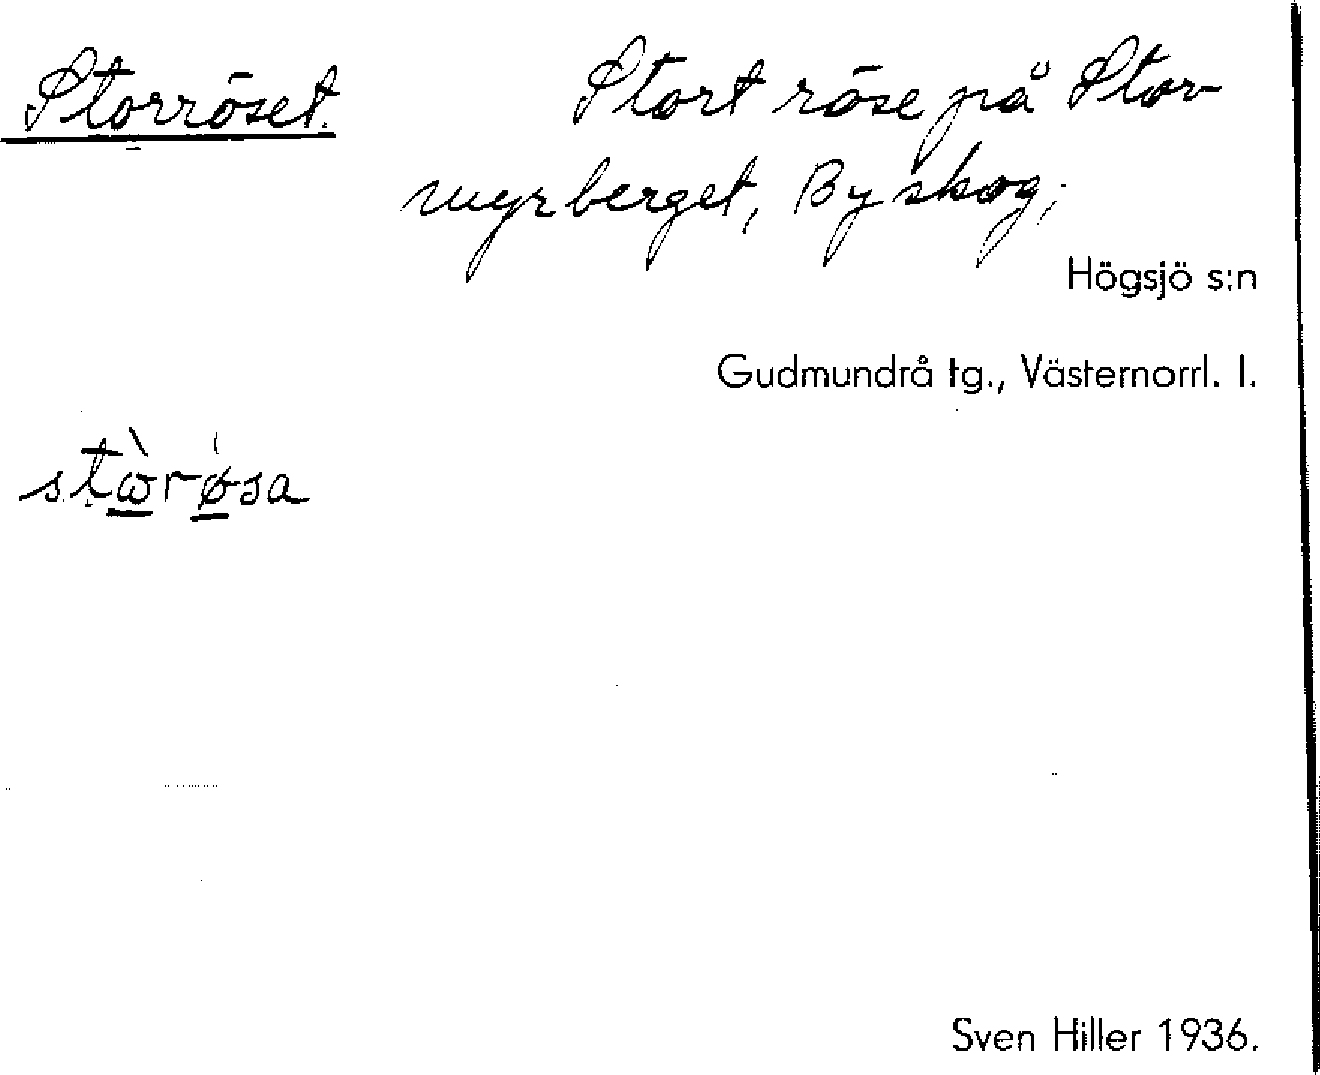 Storröset. Stort röse på Stor-
myrberget, Byskog;
Högsjö s:n
Gudmundrå tg., Västernorrl. l.
stὼrǿsa
Sven Hiller 1936.